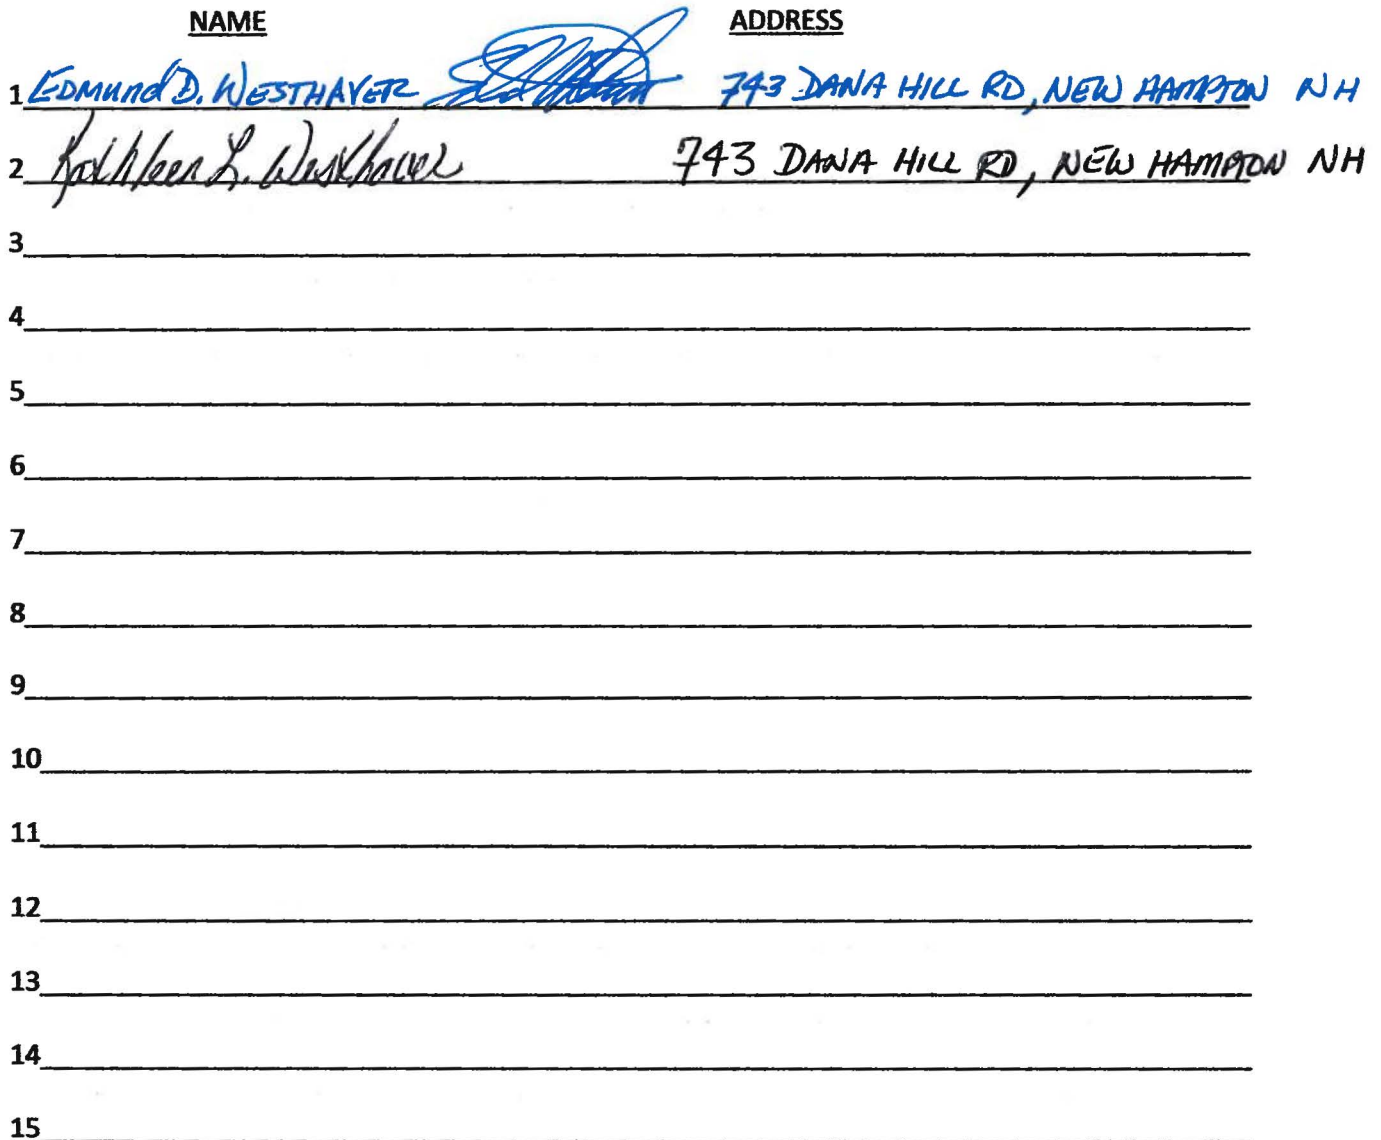 NAME ADDRESS
1 EDMUND D. WESTHAVER 743 DANA HILL RD, NEW HAMPTON NH
2 Kathleen L. Westhaver 743 DANA HILL RD, NEW HAMPTON NH
3
4
5
6
7
8
9
10
11
12
13
14
15